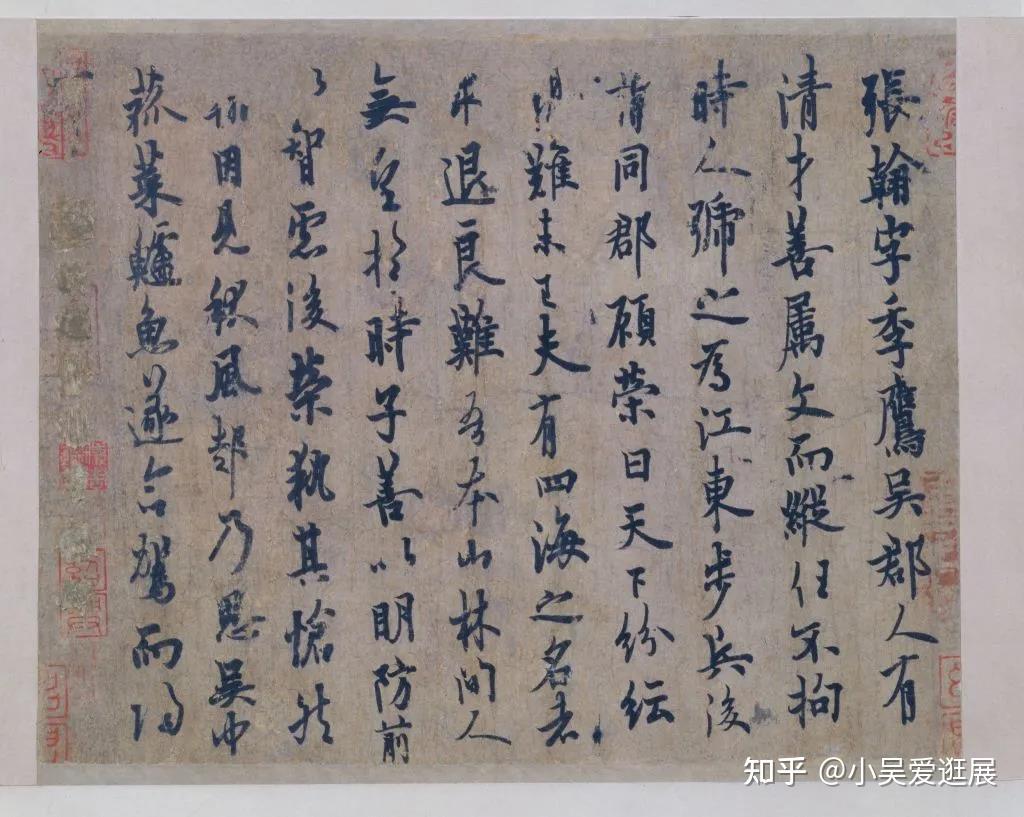 張翰字季鷹吳郡人有
清才善属文而縱任不拘
時人號之為江東步兵後
謂同郡顧榮曰天下紛紜
難未已夫有四海之名者
求退良難吾本山林間人
無望於時子善以明防前
以智慮後榮執其愴然
因見秋風起乃思吳中
菰菜鱸魚遂命駕而歸
知乎 @小吴爱逛展